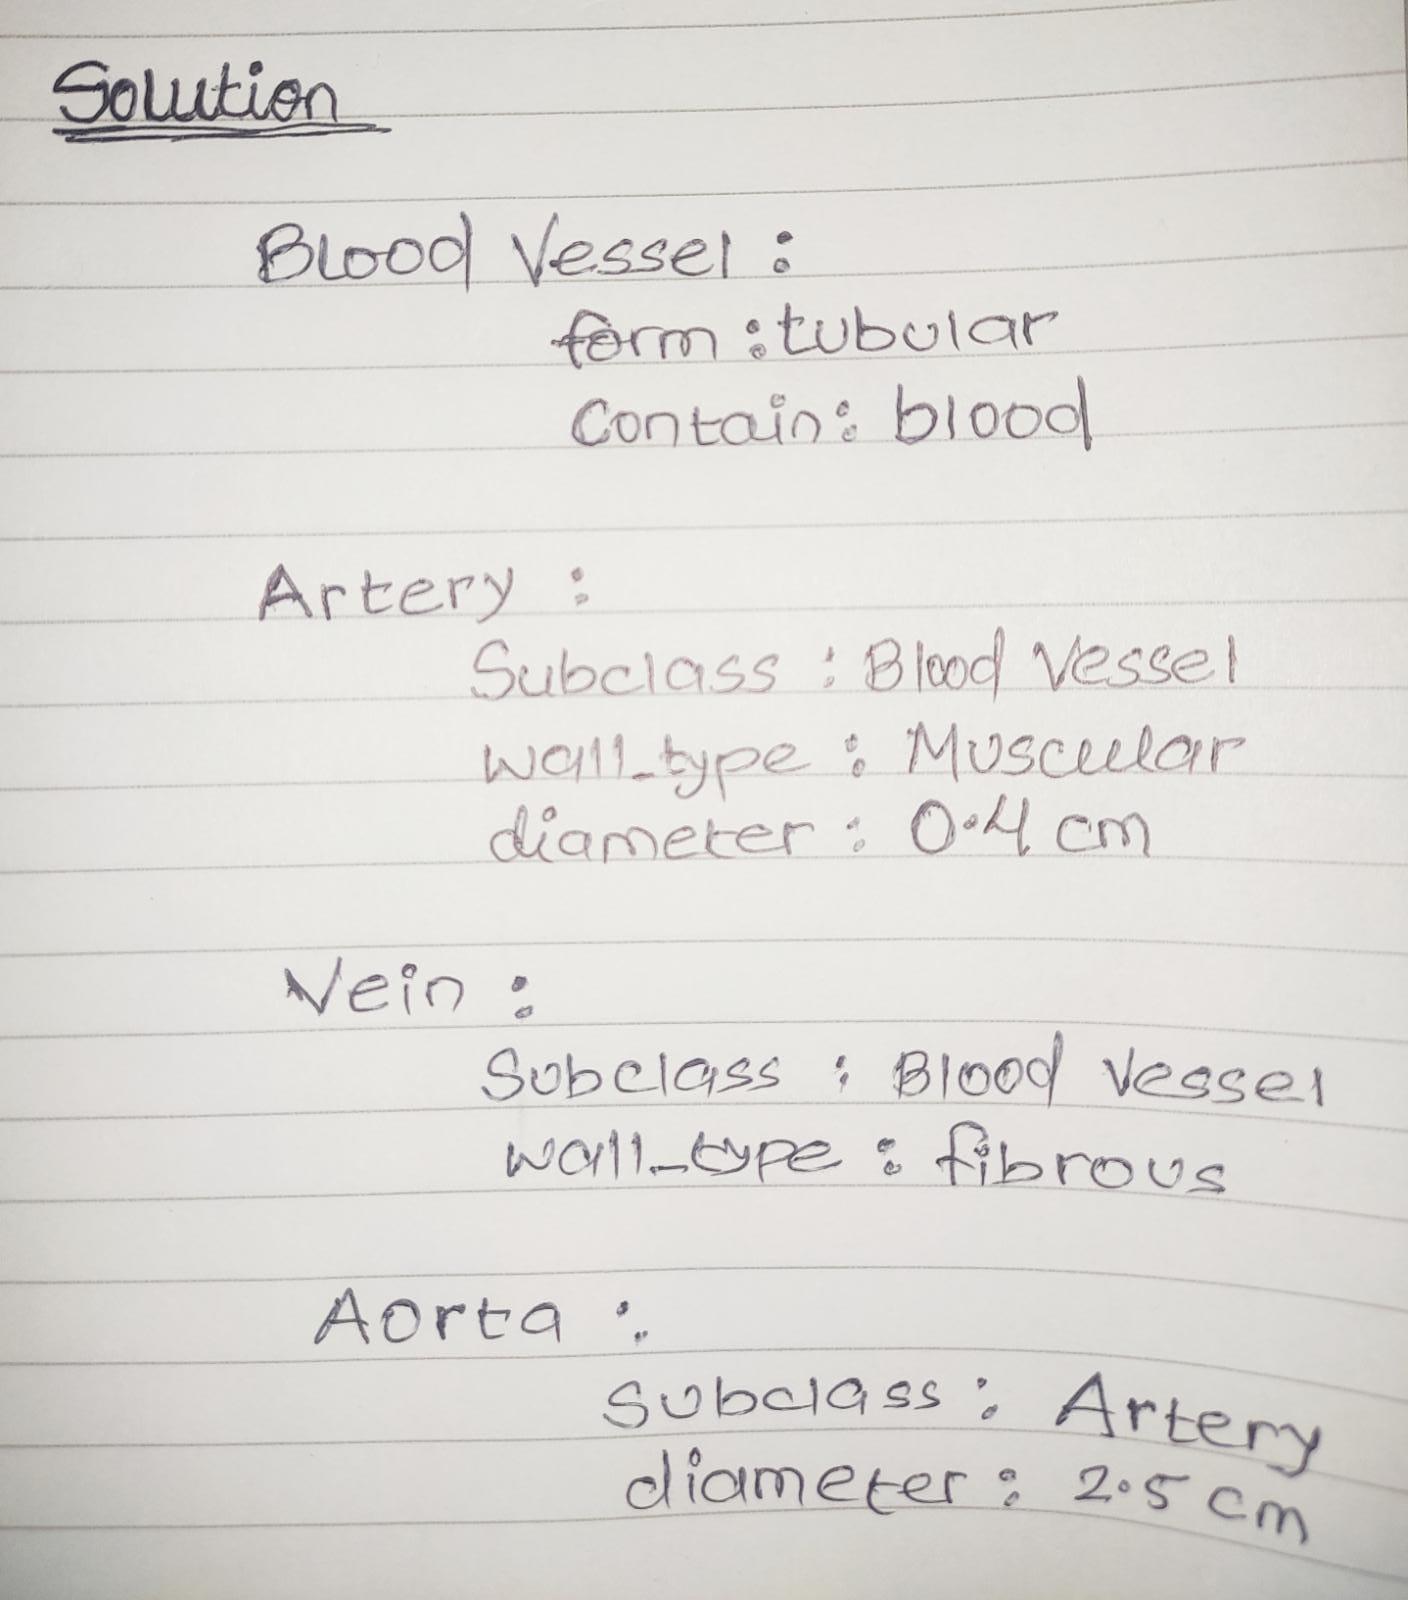 Solution
Blood Vessel :
form : tubular
Contain : blood
Artery :
Subclass : Blood Vessel
wall_type : Muscular
diameter : 0.4 cm
Vein :
Subclass : Blood Vessel
wall_type : fibrous
Aorta :
Subclass : Artery
diameter : 2.5 cm